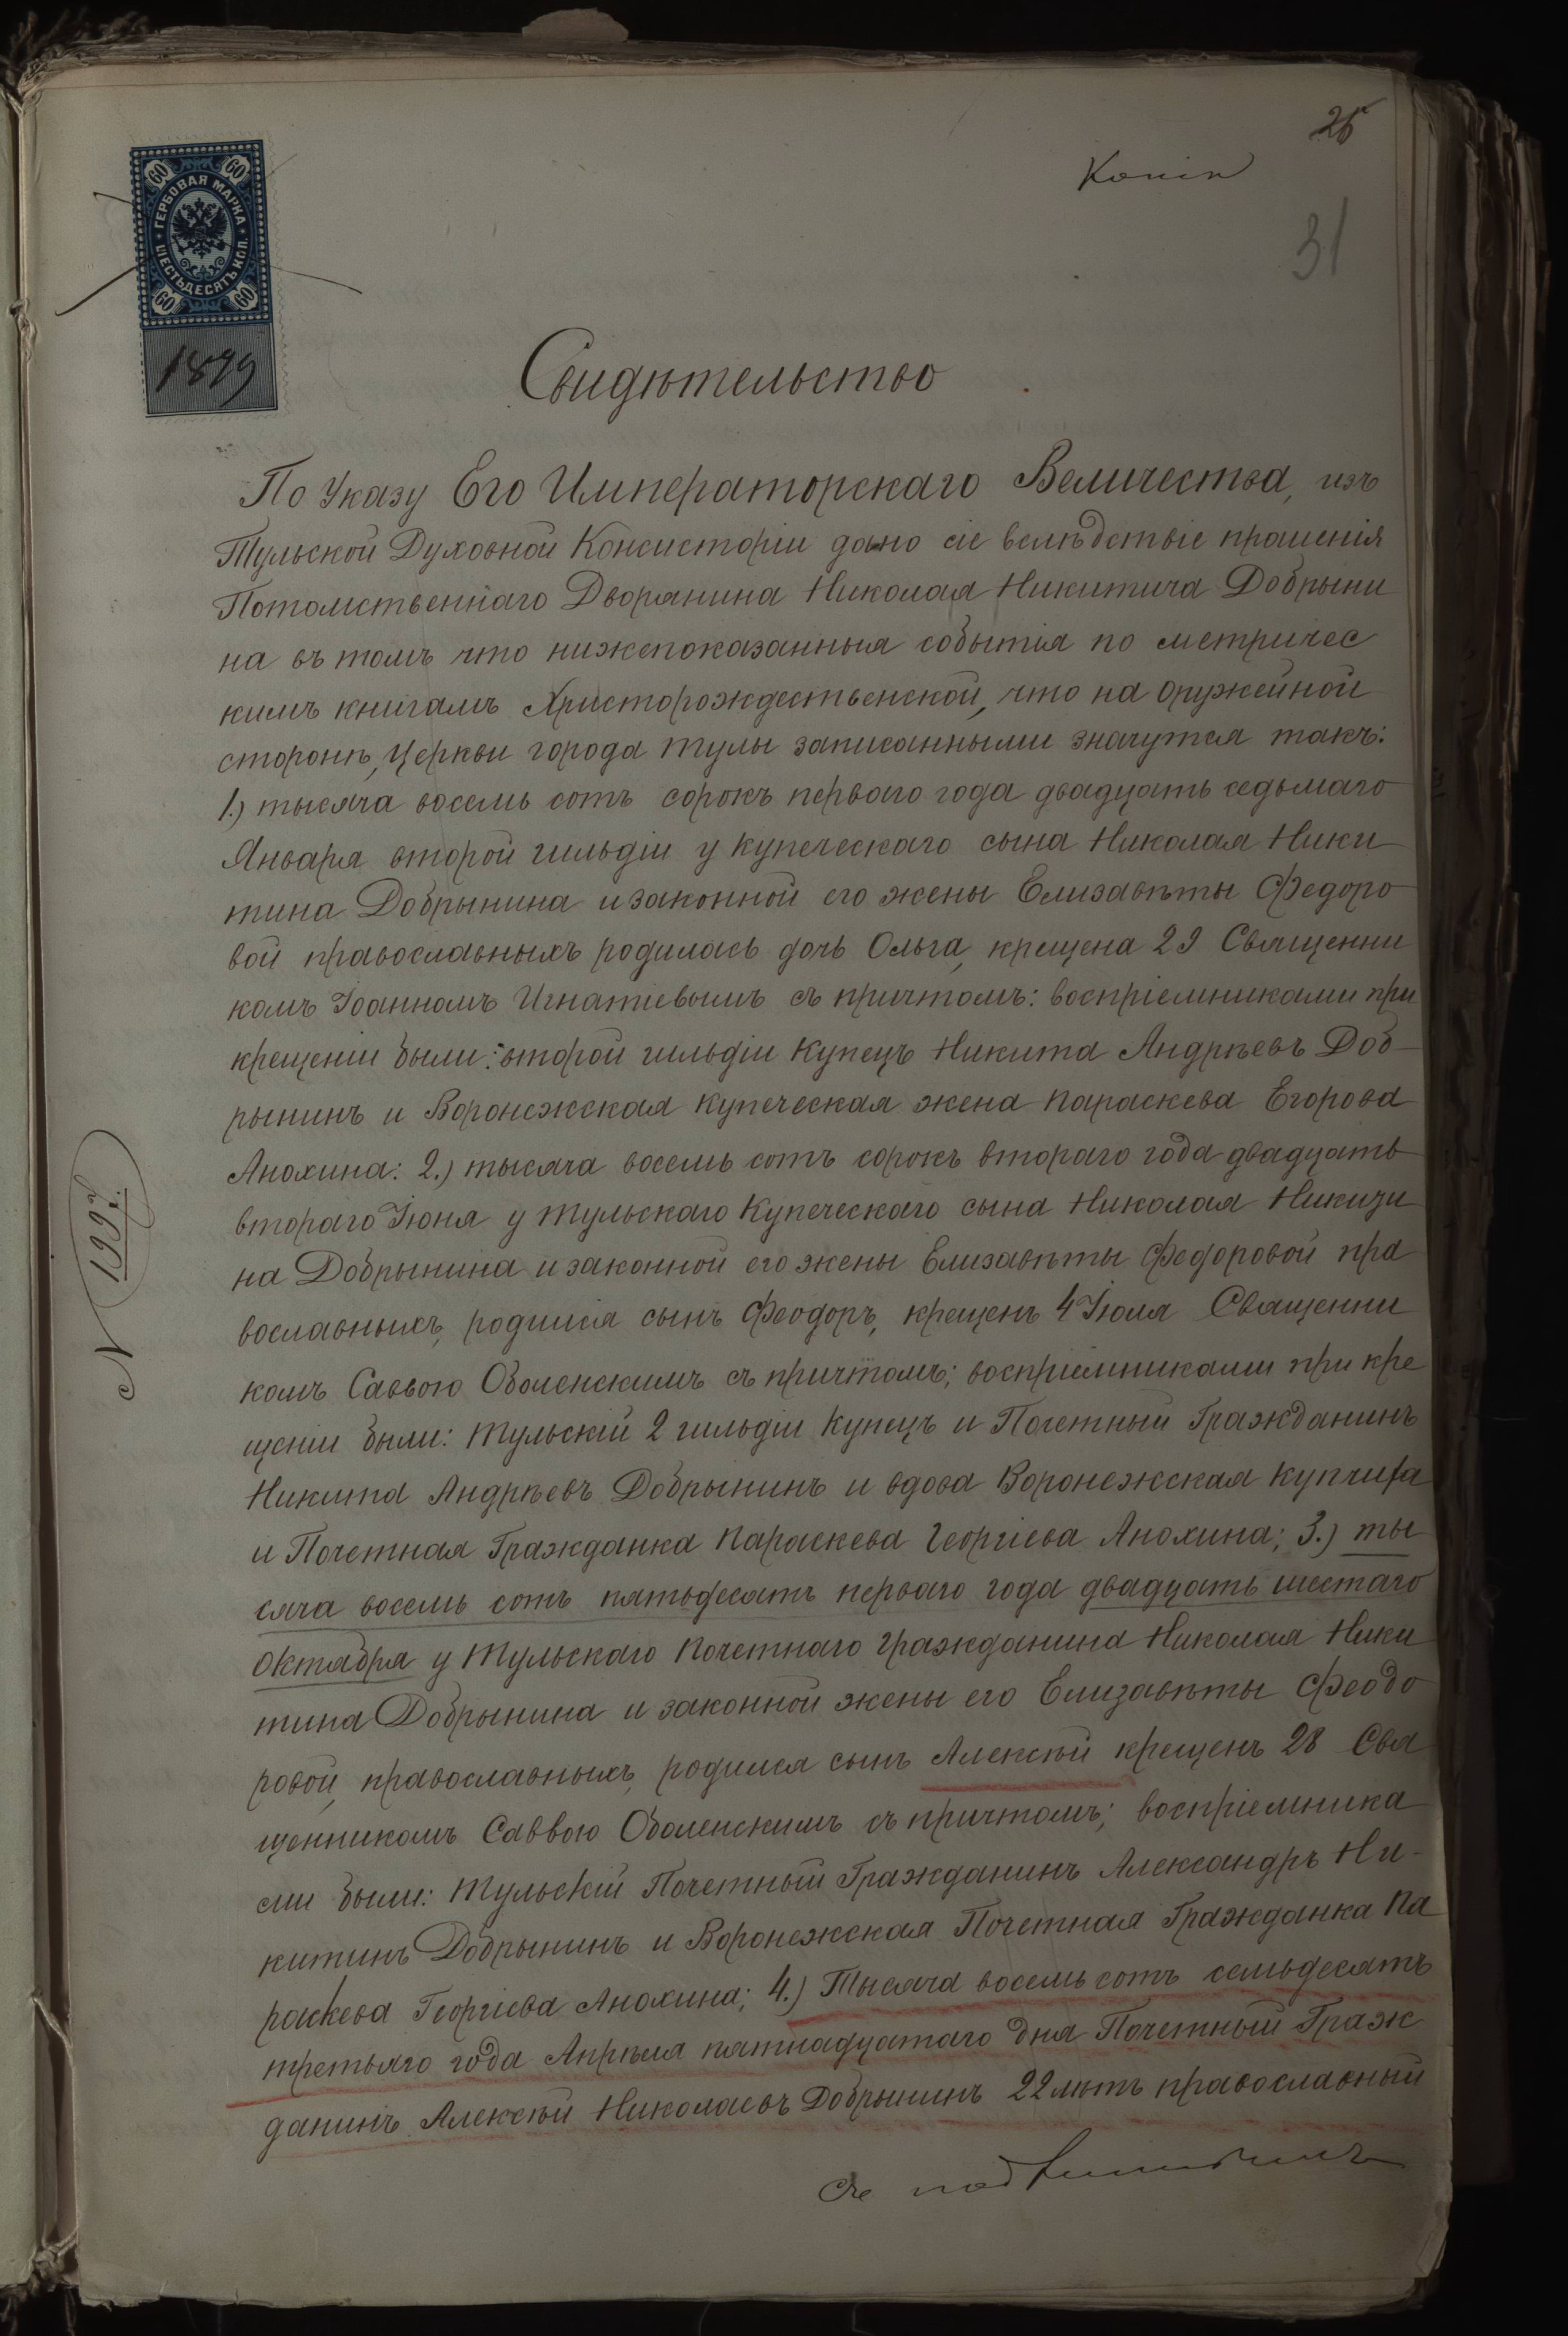 26
Копія
31
60 60
ГЕРБОВАЯ МАРКА
ШЕСТЬДЕСЯТЪ КОП.
60 60
1899
Свидѣтельство
По Указу Его Императорскаго Величества, изъ
Тульской Духовной Консисторіи дано сіе вслѣдствіе прошенія
Потомственнаго Дворянина Николая Никитича Добрыни
на въ томъ что нижепоказанныя событія по метричес
кимъ книгамъ Христорождественской, что на Оружейной
сторонѣ, Церкви города Тулы записанными значутся такъ:
1.) тысяча восемь сотъ сорокъ перваго года двадцать седьмаго
Января второй гильдіи у купеческаго сына Николая Ники
тина Добрынина и законной его жены Елизавѣты Федоро
вой православныхъ родилась дочь Ольга, крещена 29 Священни
комъ Іоанномъ Игнатіевымъ съ причтомъ: воспріемниками при
крещеніи были: второй гильдіи Купецъ Никита Андрѣевъ Доб-
рынинъ и Воронежская купеческая жена Параскева Егорова
Анохина: 2.) тысяча восемь сотъ сорокъ втораго года двадцать
втораго Іюня у Тульскаго Купеческаго сына Николая Никити
на Добрынина и законной его жены Елизавѣты Федоровой пра
вославныхъ, родился сынъ Феодоръ, крещенъ 4 Іюля Священни
комъ Саввою Оболенскимъ съ причтомъ; воспріемниками при кре
щеніи были: Тульскій 2 гильдіи Купецъ и Почетный Гражданинъ
Никита Андрѣевъ Добрынинъ и вдова Воронежская купчиха
и Почетная Гражданка Параскева Георгіева Анохина; 3.) ты
сяча восемь сотъ пятьдесятъ перваго года двадцать шестаго
Октября у Тульскаго Почетнаго Гражданина Николая Ники
тина Добрынина и законной жены его Елизавѣты Феодо
ровой, православныхъ, родился сынъ Алексѣй крещенъ 28 Свя
щенникомъ Саввою Оболенскимъ съ причтомъ; воспріемника
ми были: Тульскій Почетный Гражданинъ Александръ Ни-
китинъ Добрынинъ и Воронежская Почетная Гражданка Па
раскева Георгіева Анохина; 4.) Тысяча восемь сотъ семьдесятъ
третьяго года Апрѣля пятнадцатаго дня Почетный Граж
данинъ Алексѣй Николаевъ Добрынинъ 22 лѣтъ православный
Съ подлиннымъ
N